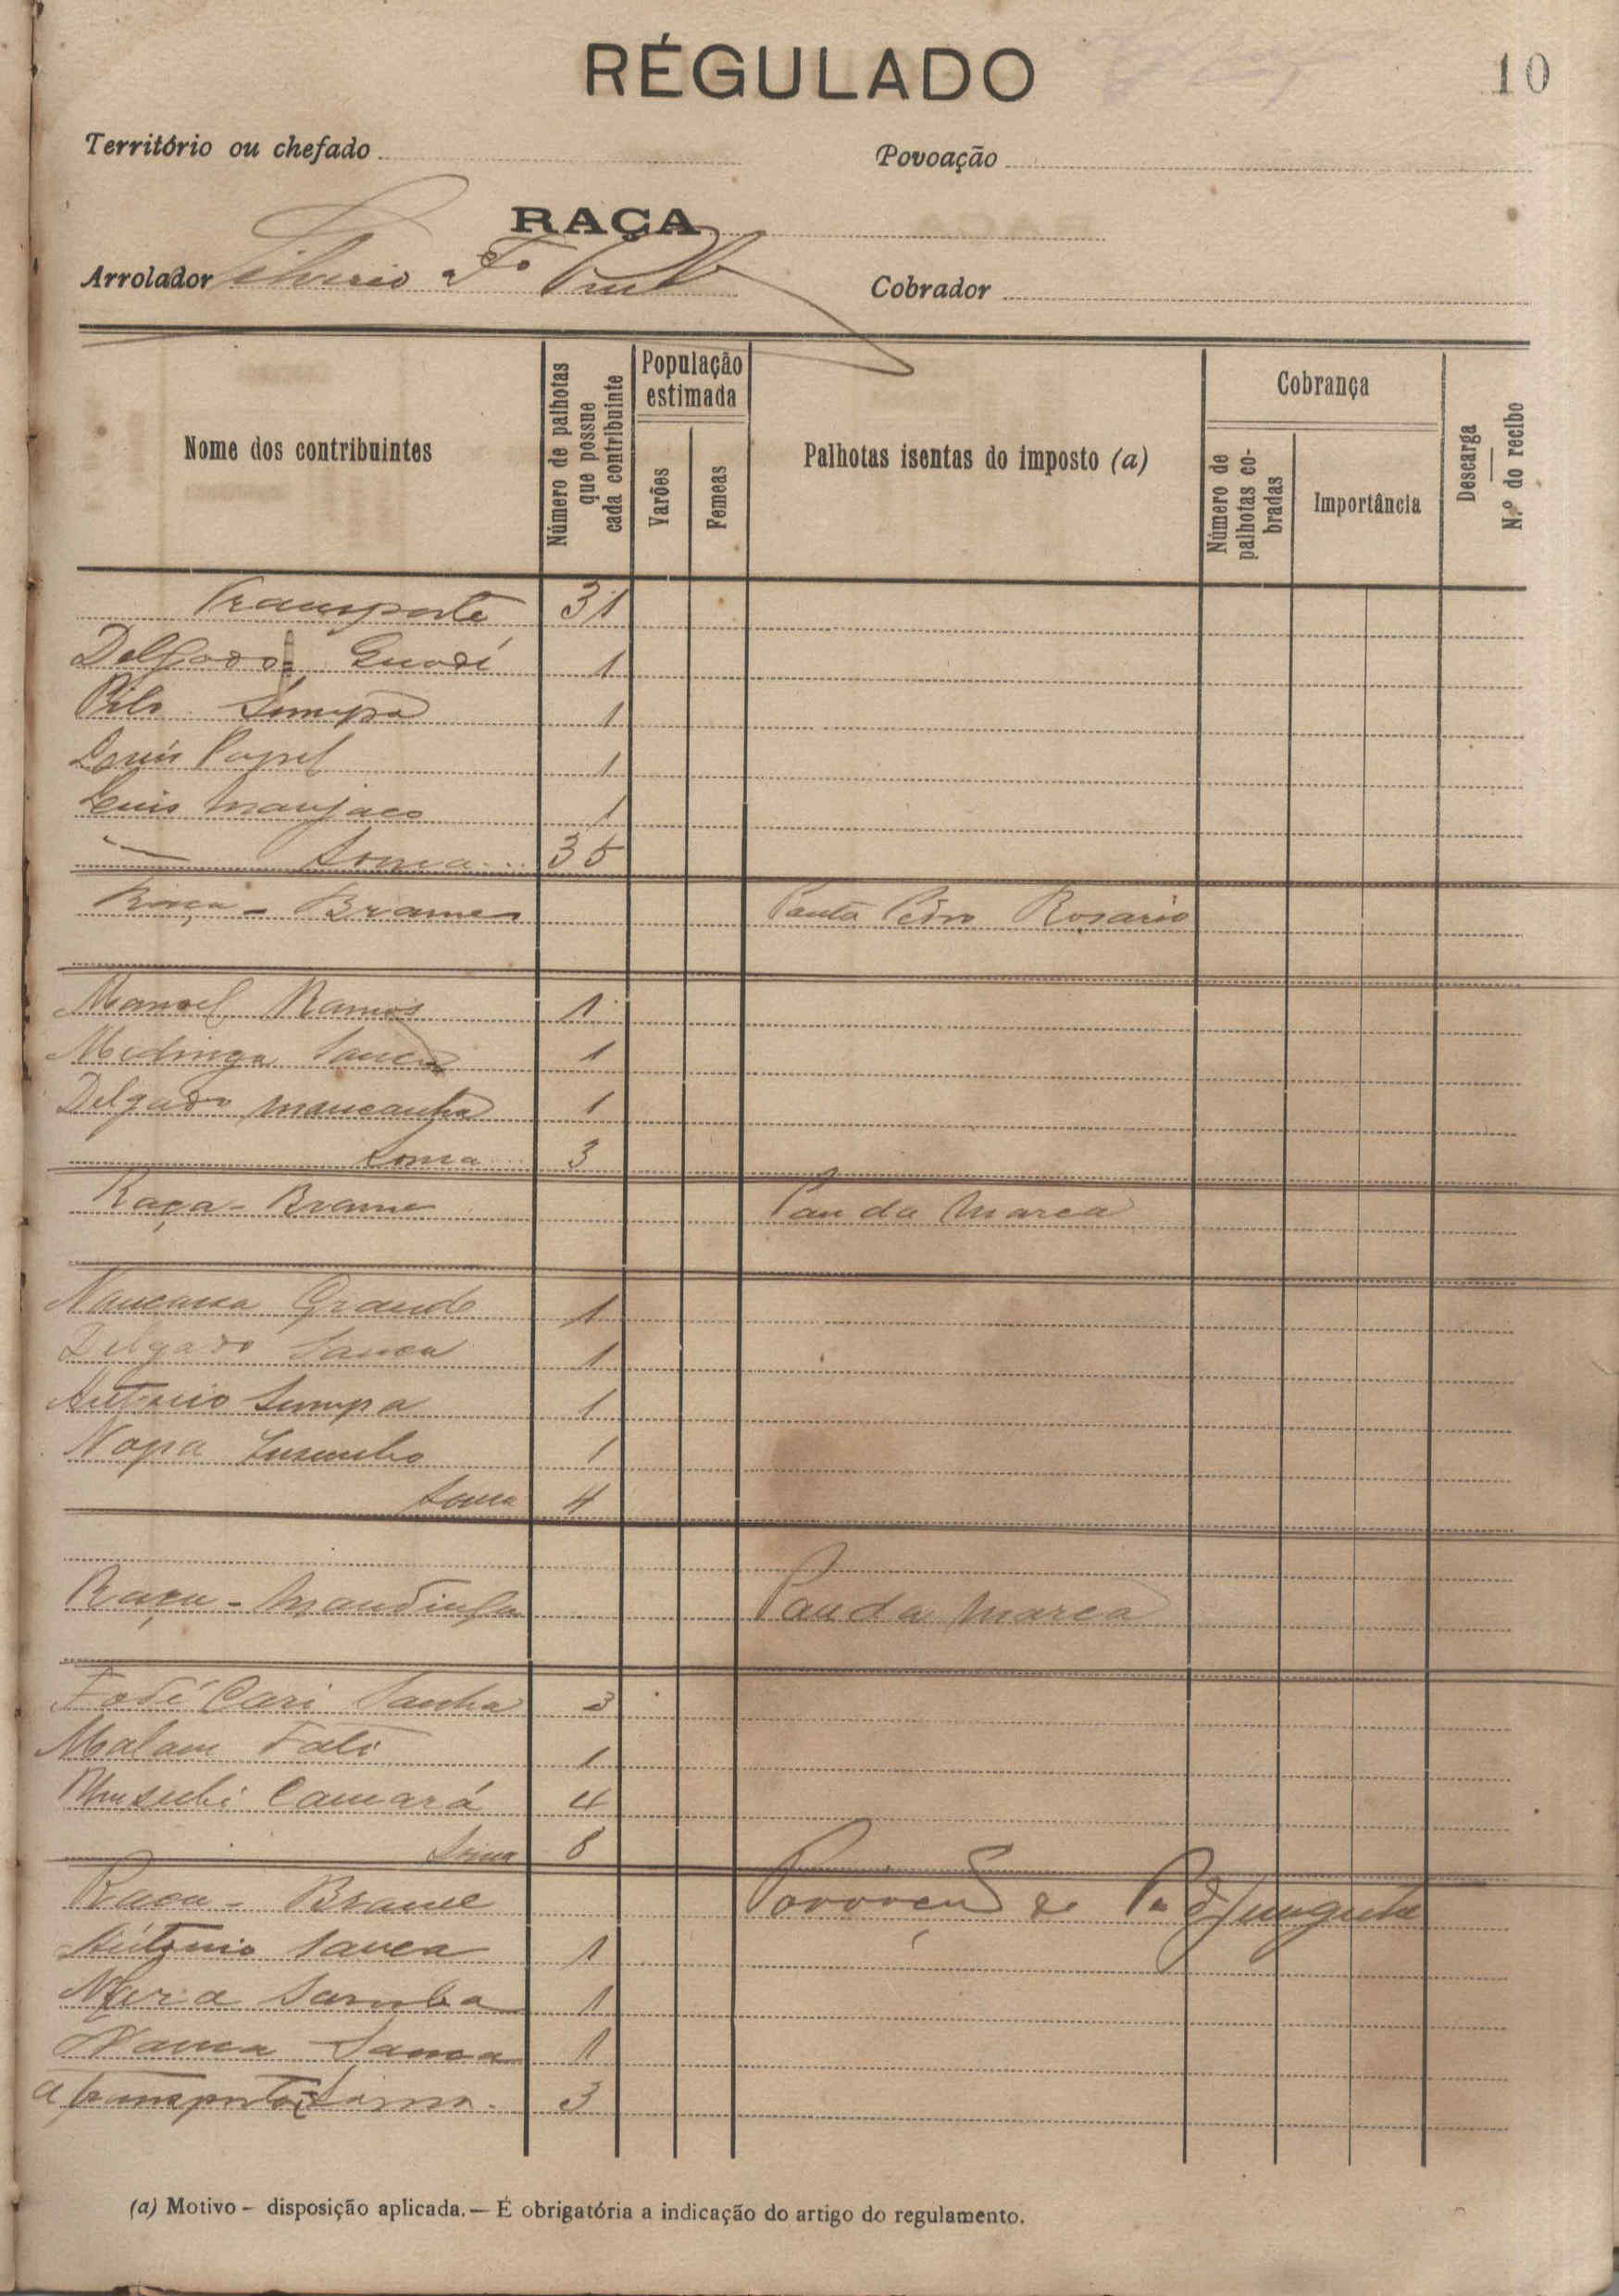 RÉGULADO
10
Território ou chefado
Povoação
RAÇA
Arrolador
Cobrador
Nome dos contribuintes
Número de palhotas que possue cada contribuinte
População estimada
Varões
Femeas
Palhotas isentas do imposto (a)
Cobrança
Número de palhotas cobradas
Importância
Descarga
N.º do recibo
Transporte 31
Delgado 1
1
Luis Papel 1
Luis Manjaco 1
Soma 35
Raça - Brames Ponta Pedro Rosario
Manoel Ramos 1
Midinga Sanca 1
Delgado mancanha 1
Soma 3
Raça - Brame Pau da Marca
Grande 1
Delgado Sanca 1
Antonio Sumpa 1
Napa 1
Soma 4
Raça - Mandinga Pau da Marca
Fodé Cari Sanha 3
Malam Fati 1
Camará 4
Soma 8
Raça - Brame
António Sanca 1
Samba 1
Nanca Sanca 1
a transportar Soma 3
(a) Motivo – disposição aplicada. — É obrigatória a indicação do artigo do regulamento.